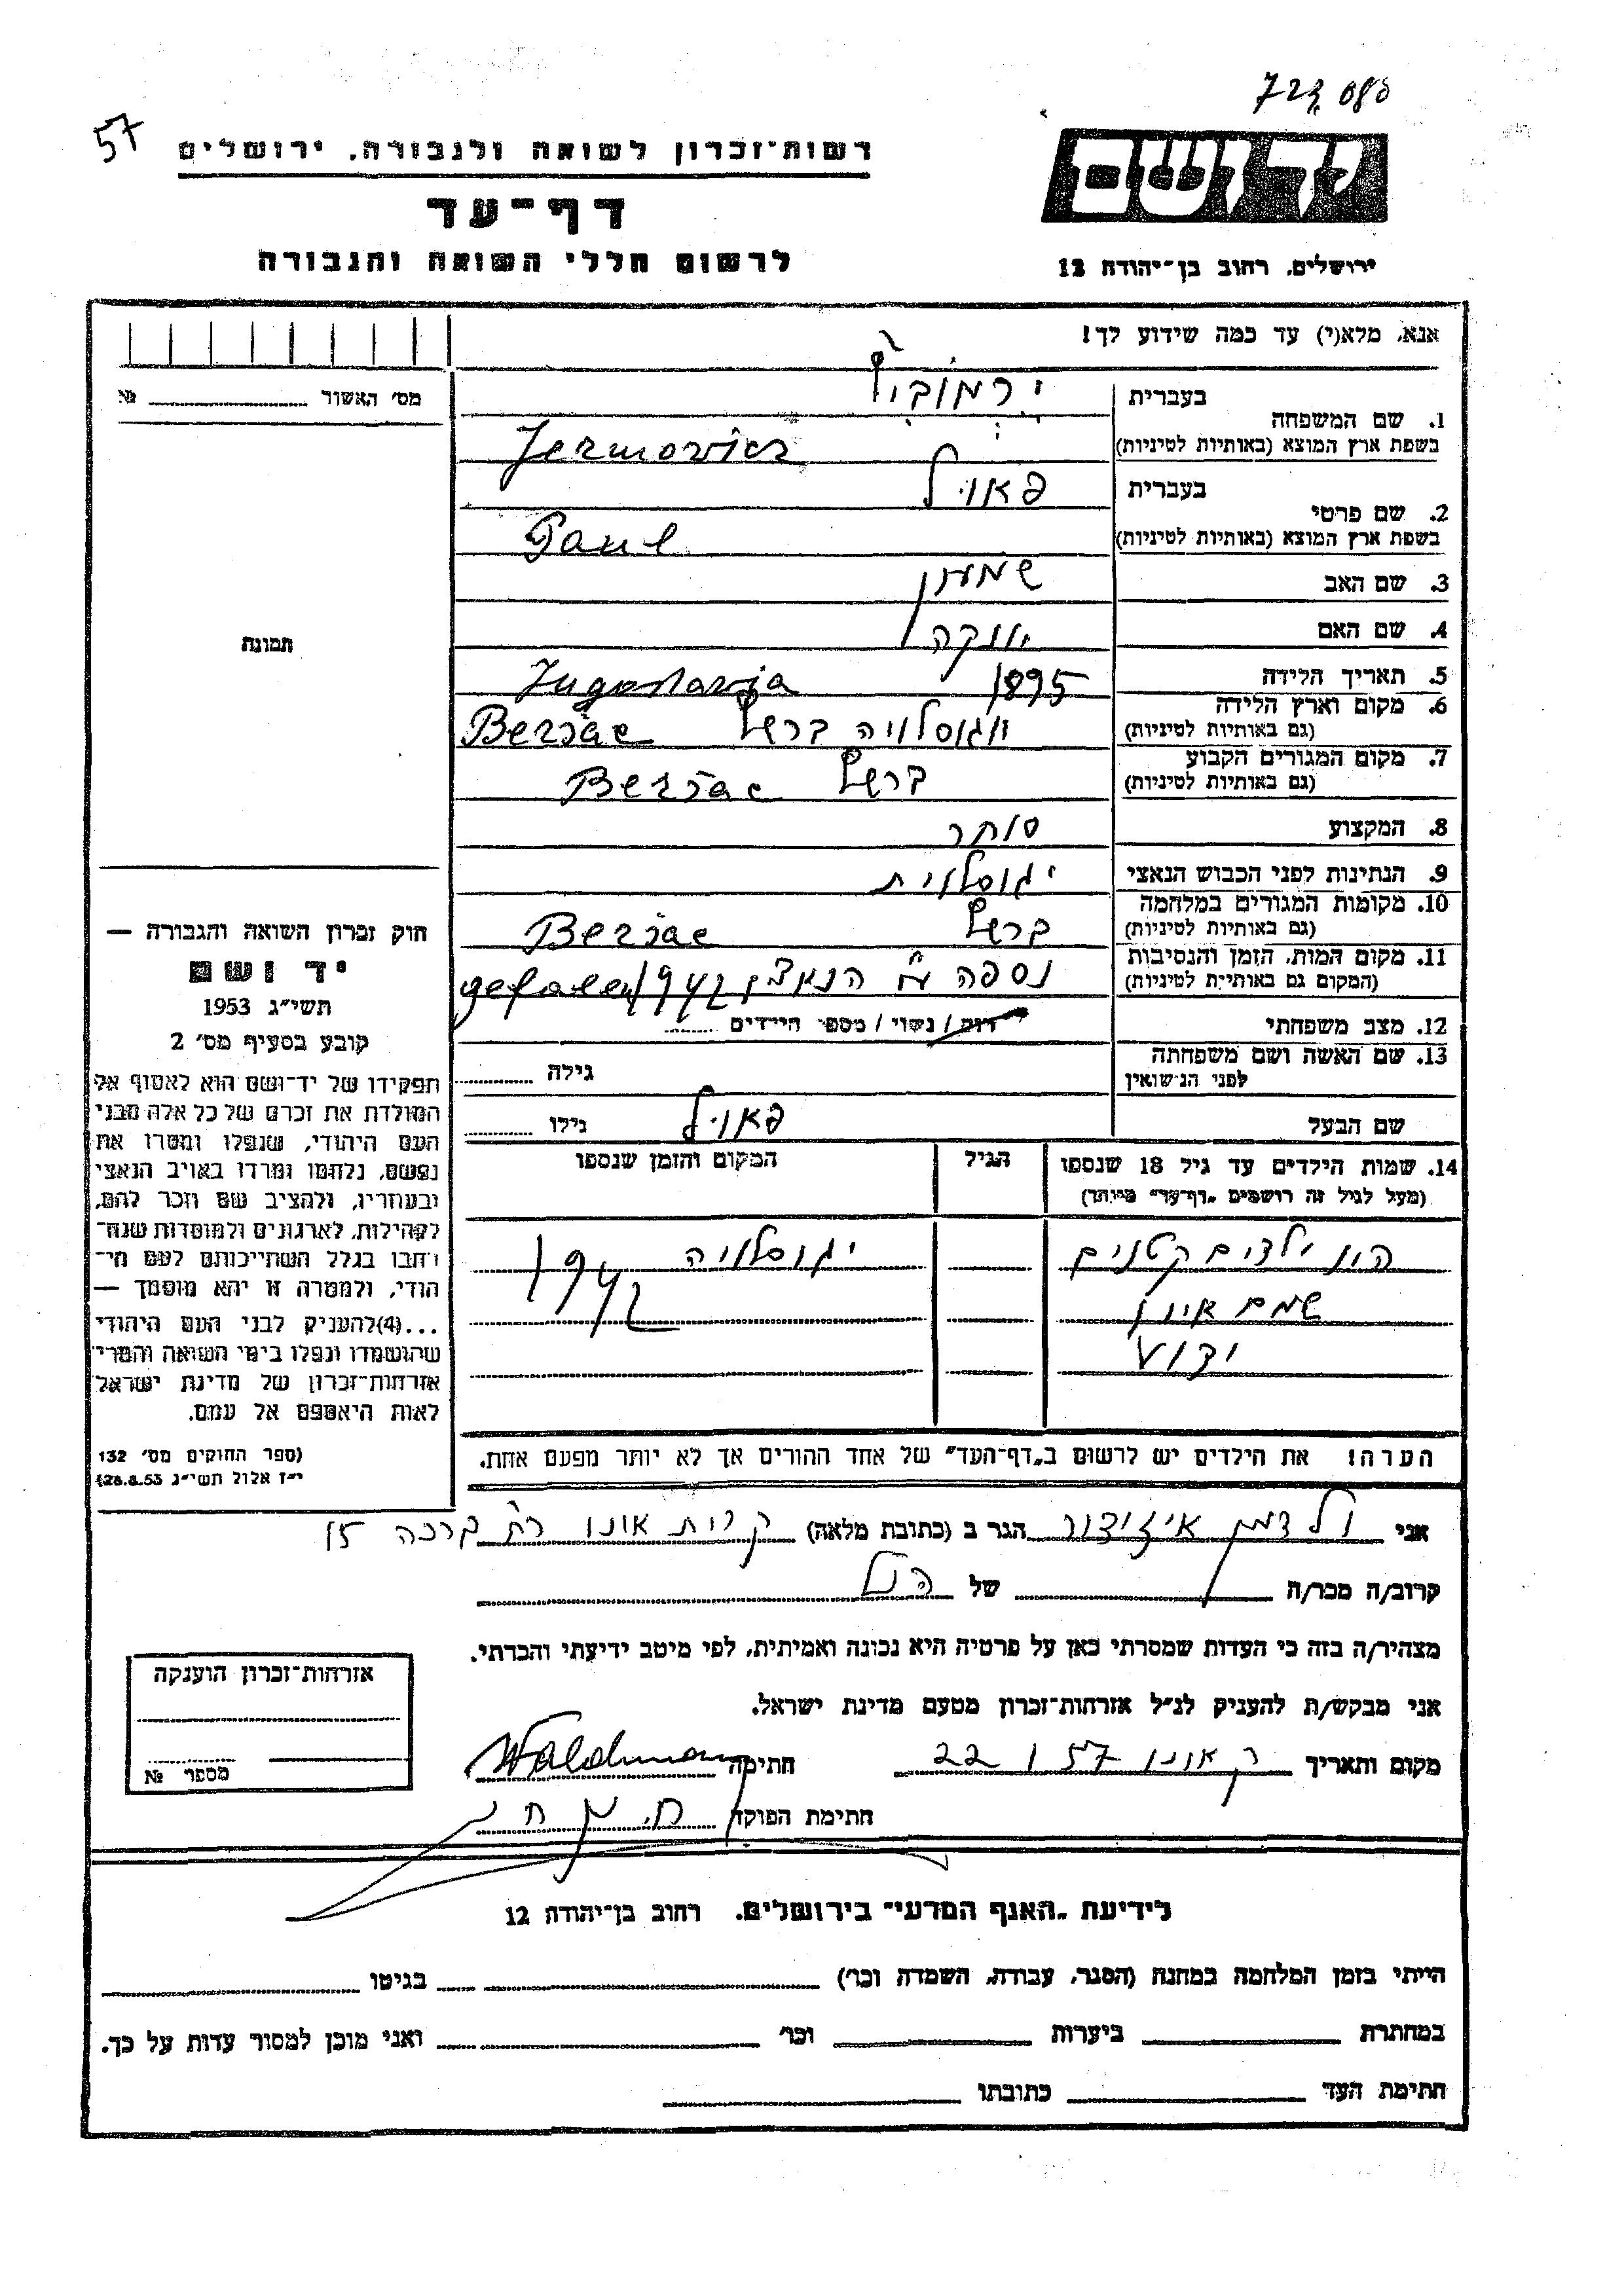 57
רשות־זכרון לשואה ולגבורה, ירושלים
דף־עד
לרשום חללי השואה והגבורה
ידושם
ירושלים, רחוב בן־יהודה 12
אנא, מלא(י) עד כמה שידוע לך!
מס׳ האשור № 
תמונה
חוק זכרון השואה והגבורה —
יד ושם
תשי״ג 1953
קובע בסעיף מס׳ 2
תפקידו של יד־ושם הוא לאסוף אל
המולדת את זכרם של כל אלה מבני
העם היהודי, שנפלו ומסרו את
נפשם, נלחמו ומרדו באויב הנאצי
ובעוזריו, ולהציב שם וזכר להם,
לקהילות, לארגונים ולמוסדות שנח־
רבו בגלל השתייכותם לעם הי־
הודי, ולמטרה זו יהא מוסמך —
...(4)להעניק לבני העם היהודי
שהושמדו ונפלו בימי השואה והמרי־
אזרחות־זכרון של מדינת ישראל
לאות היאספם אל עמם.
(ספר החוקים מס׳ 132
י״ז אלול תשי״ג 28.8.53)
1. שם המשפחה
בעברית
ירמוביץ
בשפת ארץ המוצא (באותיות לטיניות)
Jermovicz
2. שם פרטי
בעברית
פאויל
בשפת ארץ המוצא (באותיות לטיניות)
Paul
3. שם האב שמעון
4. שם האם
5. תאריך הלידה 1895 Jugoslavia
6. מקום וארץ הלידה
(גם באותיות לטיניות)
יוגוסלויה ברשץ Beršac
7. מקום המגורים הקבוע
(גם באותיות לטיניות)
ברשץ Beršac
8. המקצוע סוחר
9. הנתינות לפני הכבוש הנאצי יגוסלוית
10. מקומות המגורים במלחמה
(גם באותיות לטיניות)
ברשץ Beršac
11. מקום המות, הזמן והנסיבות
(המקום גם באותיית לטיניות)
נספה ע״י הנאצים 1942 gefalen
12. מצב משפחתי רווק / נשוי / מספר הילדים
13. שם האשה ושם משפחתה
לפני הנישואין
גילה
שם הבעל פאויל גילו
14. שמות הילדים עד גיל 18 שנספו
(מעל לגיל זה רושמים „דף־עד״ מיוחד)
הגיל
המקום והזמן שנספו
היו ילדים קטנים יגוסלויה 1942
שמם אינו
ידוע
הערה! את הילדים יש לרשום ב„דף־העד״ של אחד ההורים אך לא יותר מפעם אחת.
אני ולדמן איזידור הגר ב (כתובת מלאה) קרית אונו רח׳ ברכה 15
קרוב/ה מכר/ה של הנ״ל
מצהיר/ה בזה כי העדות שמסרתי כאן על פרטיה היא נכונה ואמיתית, לפי מיטב ידיעתי והכרתי.
אני מבקש/ת להעניק לנ״ל אזרחות־זכרון מטעם מדינת ישראל.
מקום ותאריך ק. אונו 22 1 57 חתימה Waldman
חתימת הפוקד
אזרחות־זכרון הוענקה
מספר №
לידיעת „האגף המדעי״ בירושלים, רחוב בן־יהודה 12
הייתי בזמן המלחמה במחנה (הסגר, עבודה, השמדה וכו׳) בגיטו
במחתרת ביערות וכו׳ ואני מוכן למסור עדות על כך.
חתימת העד כתובתו